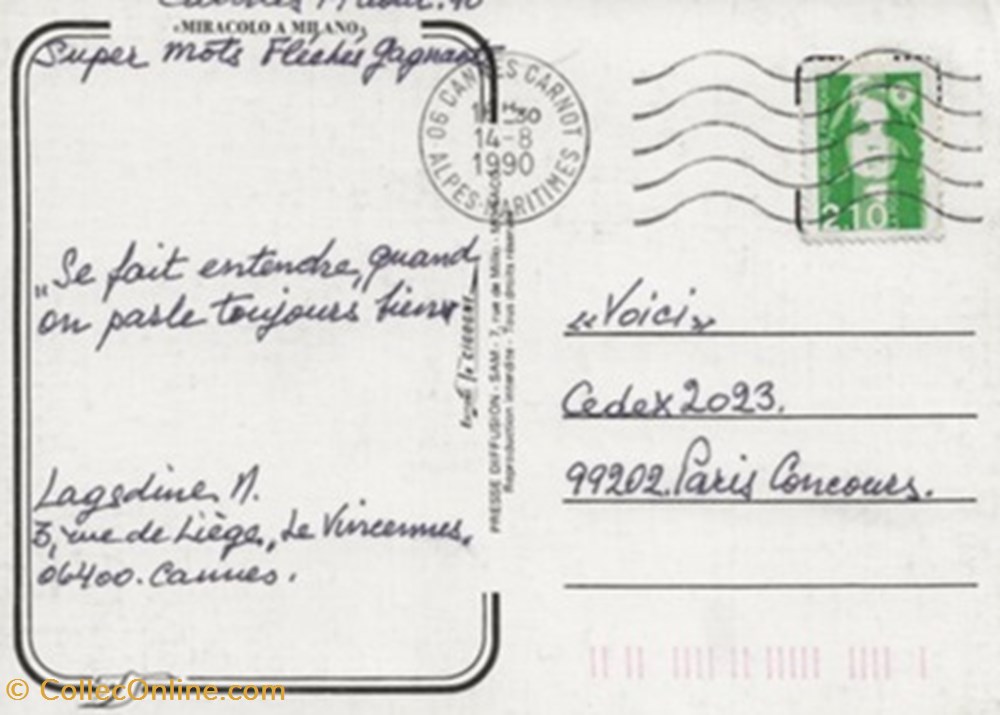 Cannes 14 août.90
«MIRACOLO A MILANO»
Super Mots Fléchés gagnants
"Se fait entendre, quand
on parle toujours bien"
Lagedine N.
3, rue de Liège, Le Vincennes,
06400. Cannes.
PRESSE DIFFUSION - SAM - 7, rue de Millo - MONACO
Reproduction interdite - Tous droits réservés
06 CANNES CARNOT
30
14-8
1990
ALPES-MARITIMES
2,10
«Voici»
Cedex 2023.
99202. Paris Concours.
© CollecOnline.com